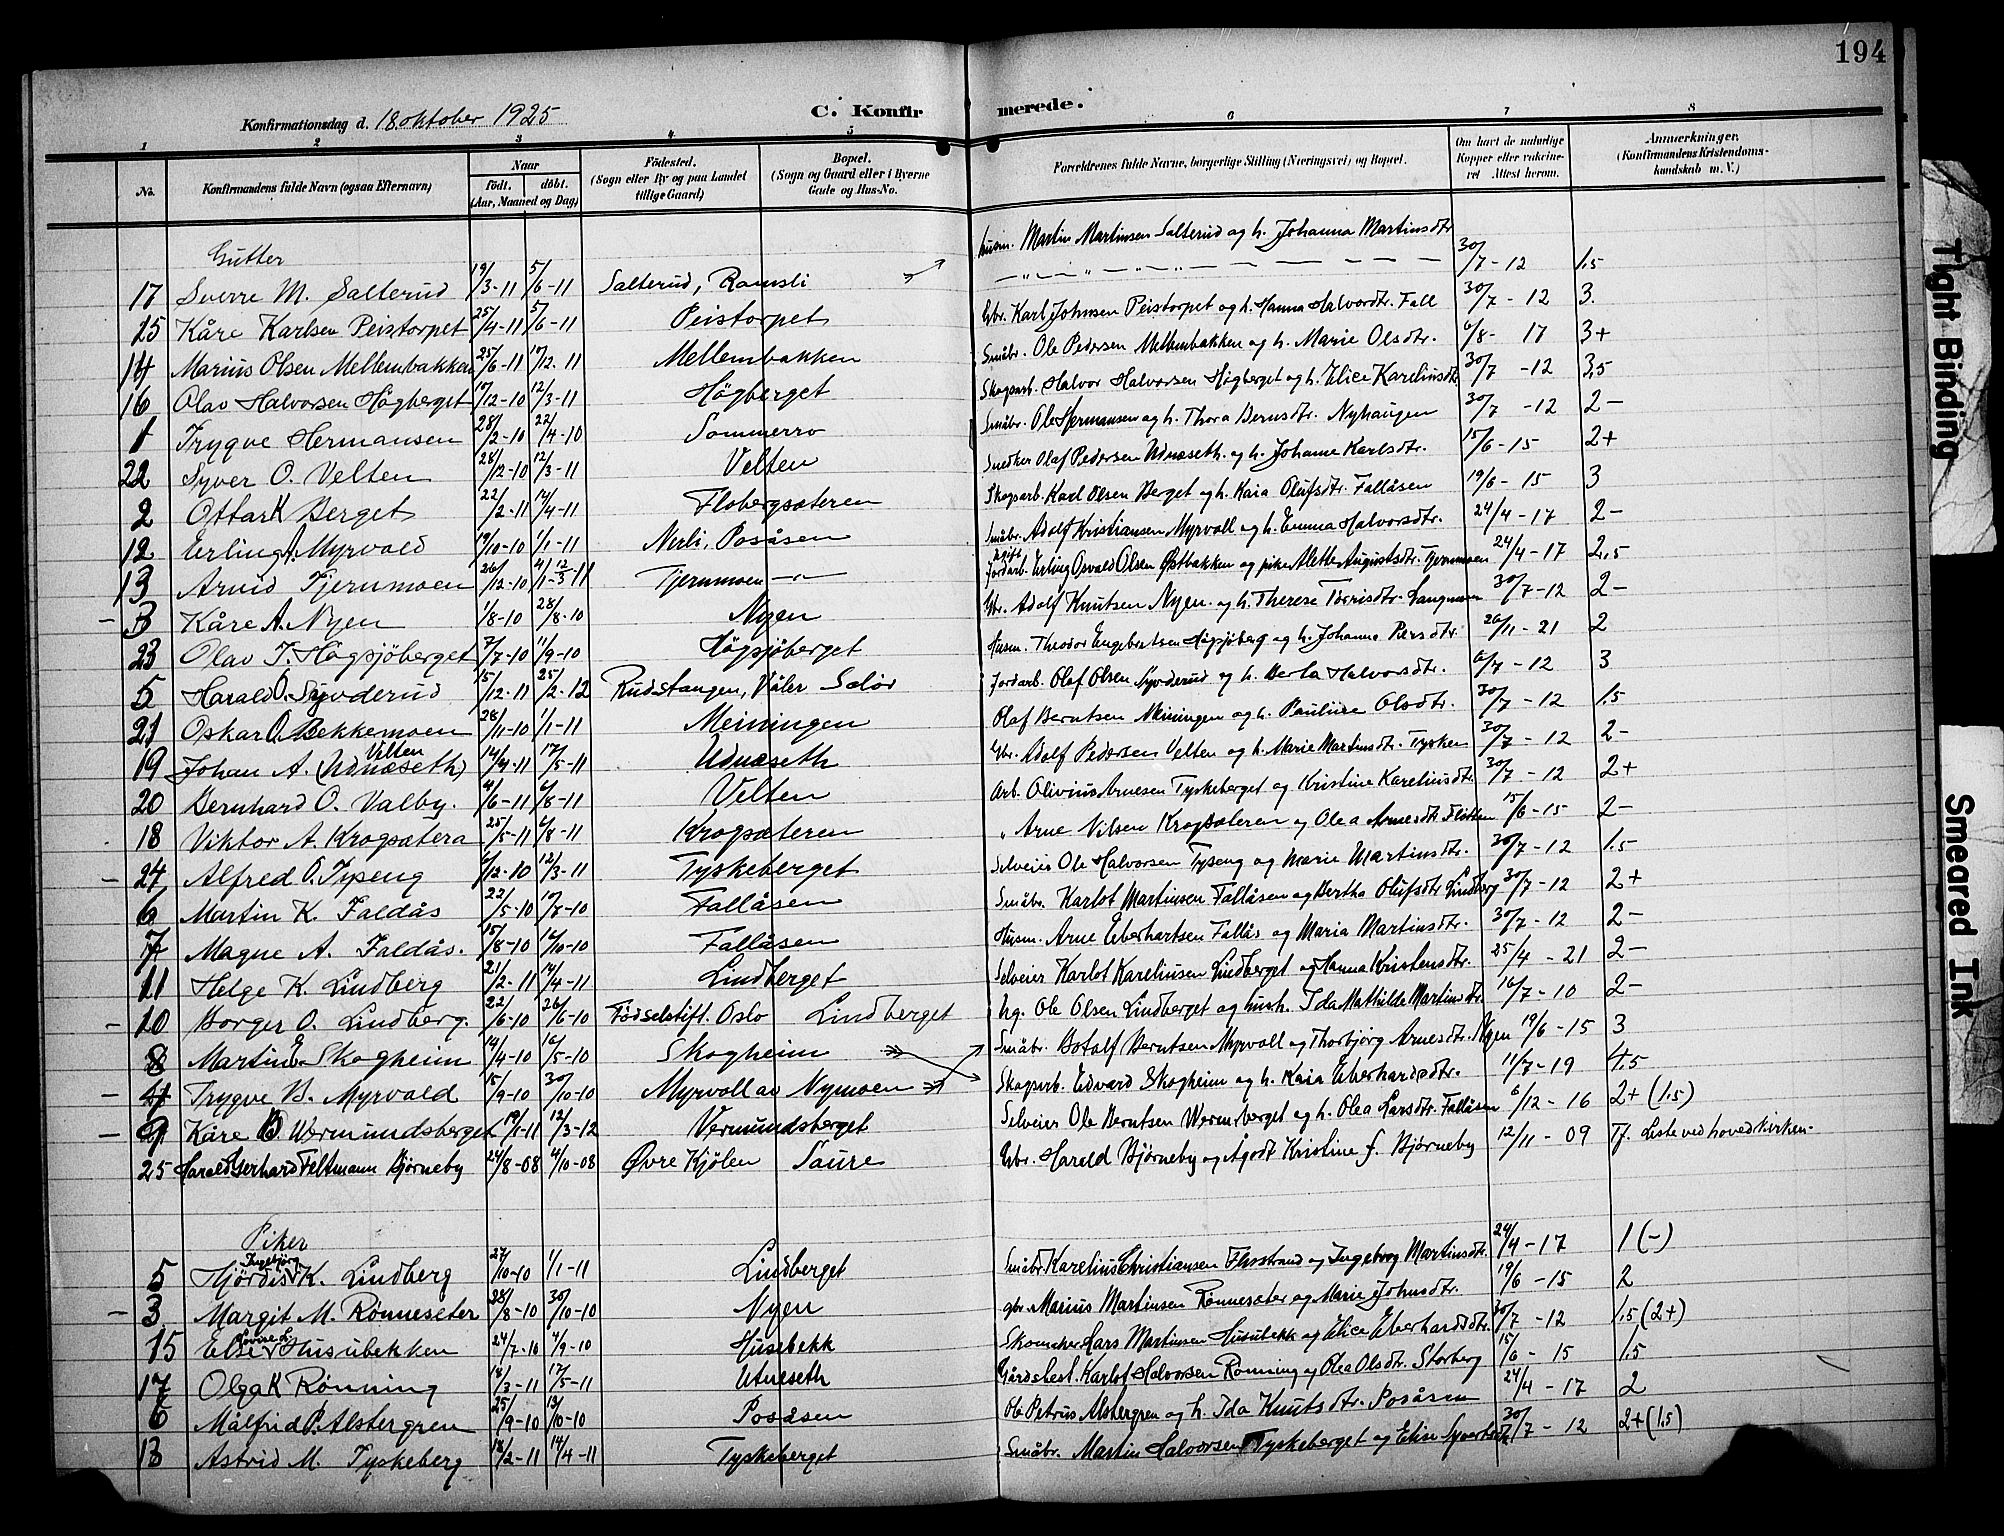 194
Konfirmationsdag d. 18 oktober 1925
C. Konfirmerede.
1 2 3 4 5 6 7 8
No. Konfirmandens fulde Navn (ogsaa Efternavn) Naar født. døbt. (Aar, Maaned og Dag) Fødested. (Sogn eller By og paa Landet tillige Gaard) Bopæl. (Sogn og Gaard eller i Byerne Gade og Hus-No. Forældrenes fulde Navne, borgerlige Stilling (Næringsvei) og Bopæl. Om havt de naturlige Kopper eller vakcineret Attest herom. Anmærkninger. (Konfirmandens Kristendomskundskab m. V.)
Gutter
husm. Martin Martinsen Salterud og h. Johanna Martinsdtr
17 Sverre M. Salterud 19/3-11 5/6-11 Salterud, Ramsli 30/7-12 1.5
15 Kåre Karlsen Peistorpet 25/4-11 5/6-11 Peistorpet Gbr. Karl Johnsen Peistorpet og h. Hanna Halvordtr. Fall 30/7-12 3.
14 Marius Olsen Mellembakken 25/6-11 17/12-11 Mellembakken Småbr. Ole Pedersen Mellembakken og h. Marie Olsdtr. 6/8-17 3+
16 Olav Halvorsen Högberget 17/12-10 12/3-11 Högberget Skogsarb. Halvor Halvorsen Högberget og h. Elice Kareliusdtr 30/7-12 3,5
1 Trygve Hermansen 28/2-10 22/4-10 Sommerro Småbr. Ole Hermansen og h. Thora Berntsdtr. Nyhaugen 30/7-12 2-
22 Syver O. Velten 28/12-10 12/3-11 Velten Snedker Olaf Pedersen Udnæseth. og h. Johanne Karlsdtr. 15/6-15 2+
2 Ottar K Berget 22/2-11 17/4-11 Flobergsæteren Skogsarb. Karl Olsen Berget og h. Kaia Olufsdtr. Fallåsen 19/6-15 3
12 Erling A. Myrvold 19/10-10 1/1-11 Nerli, Posåsen Småbr. Adolf Kristiansen Myrvoll og h. Emma Halvorsdtr. 24/4-17 2-
13 Arvid Tjernmoen 26/12-10 Tjernmoen -"- Jordarb. Erling Osvald Olsen Østbakken og pike Alette Augustsdtr. Tjernmoen 24/4-17 2,5
3 Kåre A. Nyen 1/8-10 28/8-10 Nyen Gbr. Adolf Knutsen Nyen og h. Therese Torrisdtr. Langmoen 30/7-12 2-
23 Olav T. Högsjöberget 7/7-10 11/9-10 Högsjöberget Husm. Theodor Engebretsen Högsjöberg og h. Johanne Persdtr. 26/11-21 2
5 Harald O. Syvderud 15/12-11 25/2-12 Rudstangen, Våler Solør Jordarb. Olaf Olsen Syvderud og h. Berta Halvorsdtr. 6/7-12 3
21 Oskar O. Bekkemoen 28/11-10 1/1-11 Meiningen Olaf Berntsen Meiningen og h. Pauline Olsdtr. 30/7-12 1.5
19 Johan A. (Udnæseth) Velten 14/4-11 17/5-11 Udnæseth Gbr. Adolf Pedersen Velten og h. Marie Martinsdtr. Tysken 30/7-12 2-
20 Bernhard O. Valby. 4/6-11 6/8-11 Velten Arb. Olivius Arnesen Tyskeberget og Kristine Kareliusdtr. 30/7-12 2+
18 Viktor A. Krogsætera 25/5-11 6/8-11 Krogsæteren " Arne Nilsen Krogsæteren og Olea Arnesdtr Flisen 15/6-15 2-
24 Alfred O. Tyseng 6/12-10 12/3-11 Tyskeberget Selveier Ole Halvorsen Tyseng og Marie Martinsdtr. 30/7-12 1.5
6 Martin K. Faldås 22/5-10 17/7-10 Fallåsen Småbr. Karlot Martinsen Fallåsen og Bertha Olufsdtr. Lindberg 30/7-12 2+
7 Magne A. Faldås. 15/8-10 16/10-10 Fallåsen Husm. Arne Eberhartsen Fallås og Maria Martinsdtr. 30/7-12 2-
11 Helge K. Lindberg 21/2-11 17/4-11 Lindberget Selveier Karlot Kareliusen Lindberget og Hanna Kristensdtr. 25/4-21 2-
10 Borger O. Lindberg. 22/6-10 26/6-10 Fødselstift. Oslo Lindberget Ug. Ole Olsen Lindberget og hush. Ida Mathilde Martinsdtr 16/7-10 2-
8 Martin E. Skogheim 14/4-10 16/5-10 Skogheim Småbr. Botolf Berntsen Myrvoll og Thorbjörg Arnesdtr. Nyen 19/6-15 3
4 Trygve B. Myrvold 15/9-10 30/10-10 Myrvoll av Nymoen Skogsarb. Edvard Skogheim og h. Kaia Eberhardsdtr. 11/7-19 1.5
9 Kåre O Wermundsberget 19/1-11 12/3-12 Vermundsberget Selveier Ole Berntsen Wermberget og h. Olea Larsdtr. Fallåsen 6/12-16 2+ (1.5)
25 Harald Gerhard Feltmann Bjørneby 24/8-08 4/10-08 Øvre Kjølen Saure Gbr. Harald Bjørneby og Ågodt Kristine f. Bjørneby 12/11-09 Tf. Leste ved hovedkirken.
Piker
5 Hjördis Ingebjörg K. Lindberg 27/10-10 1/1-11 Lindberget Småbr. Karelius Christiansen Flisstrand og Ingeborg Martinsdtr. 24/4-17 1 (-)
3 Margit M. Rönneseter 28/8-10 30/10-10 Nyen gbr. Marius Martinsen Rönneseter og Marie Johnsdtr. 19/6-15 2
15 Else L. Husubekken 24/7-10 4/9-10 Husebekk Skomaker Lars Martinsen Husubekk og Elice Eberhardsdtr. 30/7-12 1.5 (2+)
17 Olga K Rönning 18/3-11 17/5-11 Utneseth Gårdsbest. Karlot Halvorsen Rönning og Olea Olsdtr. Storberg 15/6-15 1.5
6 Målfrid P. Alsbergren 25/9-10 13/10-10 Posåsen Ole Petrus Alsbergren og h. Ida Knutsdtr. Posåsen 24/4-17 2
13 Astrid M. Tyskeberg 18/2-11 14/4-11 Tyskeberget Småbr. Martin Halvorsen Tyskeberget og Elise Syvertsdtr 30/7-12 2+ (1.5)
Tight Binding
Smeared Ink